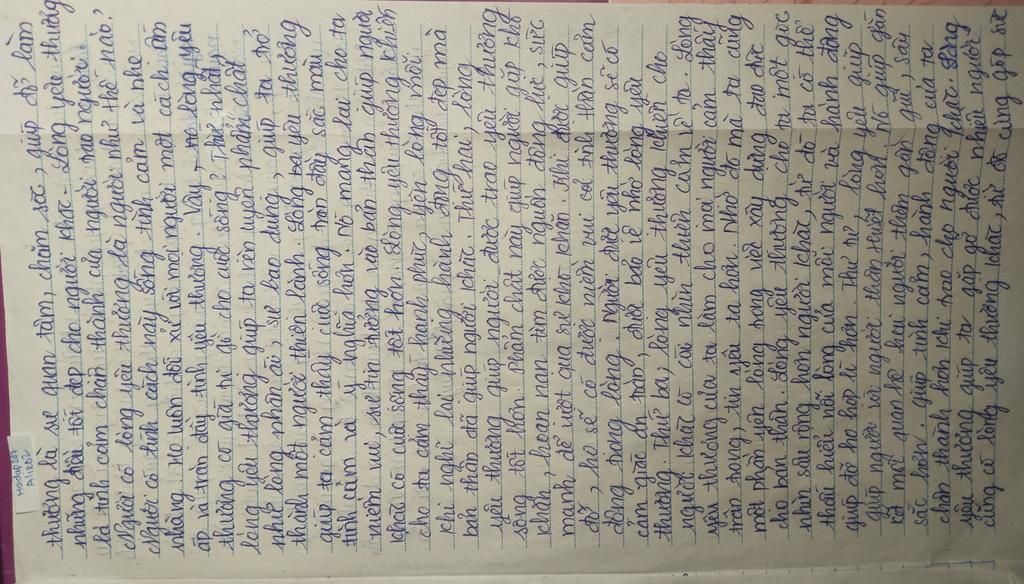 thương là sự quan tâm, chăm sóc, giúp đỡ làm
những điều tốt đẹp cho người khác. Lòng yêu thương
là tình cảm chân thành của người trao người.
Người có lòng yêu thương là người như thế nào?
Người có tính cách này sống tình cảm và nhẹ
nhàng. Họ luôn đối xử với mọi người một cách ân
áp và tràn đầy tình yêu thương. Vậy lòng yêu
thương có giá trị gì cho cuộc sống? Thứ nhất,
lòng yêu thương giúp ta rèn luyện phẩm chất
như lòng nhân ái, sự bao dung, giúp ta trở
thành một người thiện lành. Lòng yêu thương
giúp ta cảm thấy cuộc sống tràn đầy sắc màu
tình cảm và ý nghĩa hơn. Nó mang lại cho ta
niềm vui, sự tin tưởng vào bản thân giúp người
khác có cuộc sống tốt hơn. Lòng yêu thương khiến
cho ta cảm thấy hạnh phúc, yên lòng mỗi
khi nghĩ lại những hành động tốt đẹp mà
bản thân đã giúp người khác. Thứ hai, lòng
yêu thương giúp người được trao yêu thương
sống tốt hơn. Phẩm chất này giúp người gặp khó
khăn, hoạn nạn tìm được nguồn động lực, sức
mạnh để vượt qua sự khó khăn. Khi được giúp
đỡ, họ sẽ có được niềm vui và tinh thần cảm
động trong lòng. Người được yêu thương sẽ có
cảm giác an toàn, được bảo vệ nhờ lòng yêu
thương. Thứ ba, lòng yêu thương khiến cho
người khác có cái nhìn thiện cảm về ta. Lòng
yêu thương của ta làm cho mọi người cảm thấy
trân trọng, tin yêu ta hơn. Nhờ đó mà ta cũng
một phần yên lòng trong việc xây dựng đạo đức
cho bản thân. Lòng yêu thương cho ta một góc
nhìn sâu rộng hơn người khác, từ đó ta có thể
thấu hiểu nỗi lòng của mỗi người và hành động
giúp đỡ họ hợp lí hơn. Thứ tư lòng yêu giúp
giúp người với người thân thiết hơn. Nó giúp gắn
kết mối quan hệ hai người thêm gần gũi, sâu
sắc hơn, giúp tình cảm, hành động của ta
chân thành hơn khi trao cho người khác. Lòng
yêu thương giúp ta gặp gỡ được nhiều người
cũng có lòng yêu thương khác, từ đó cùng góp sức